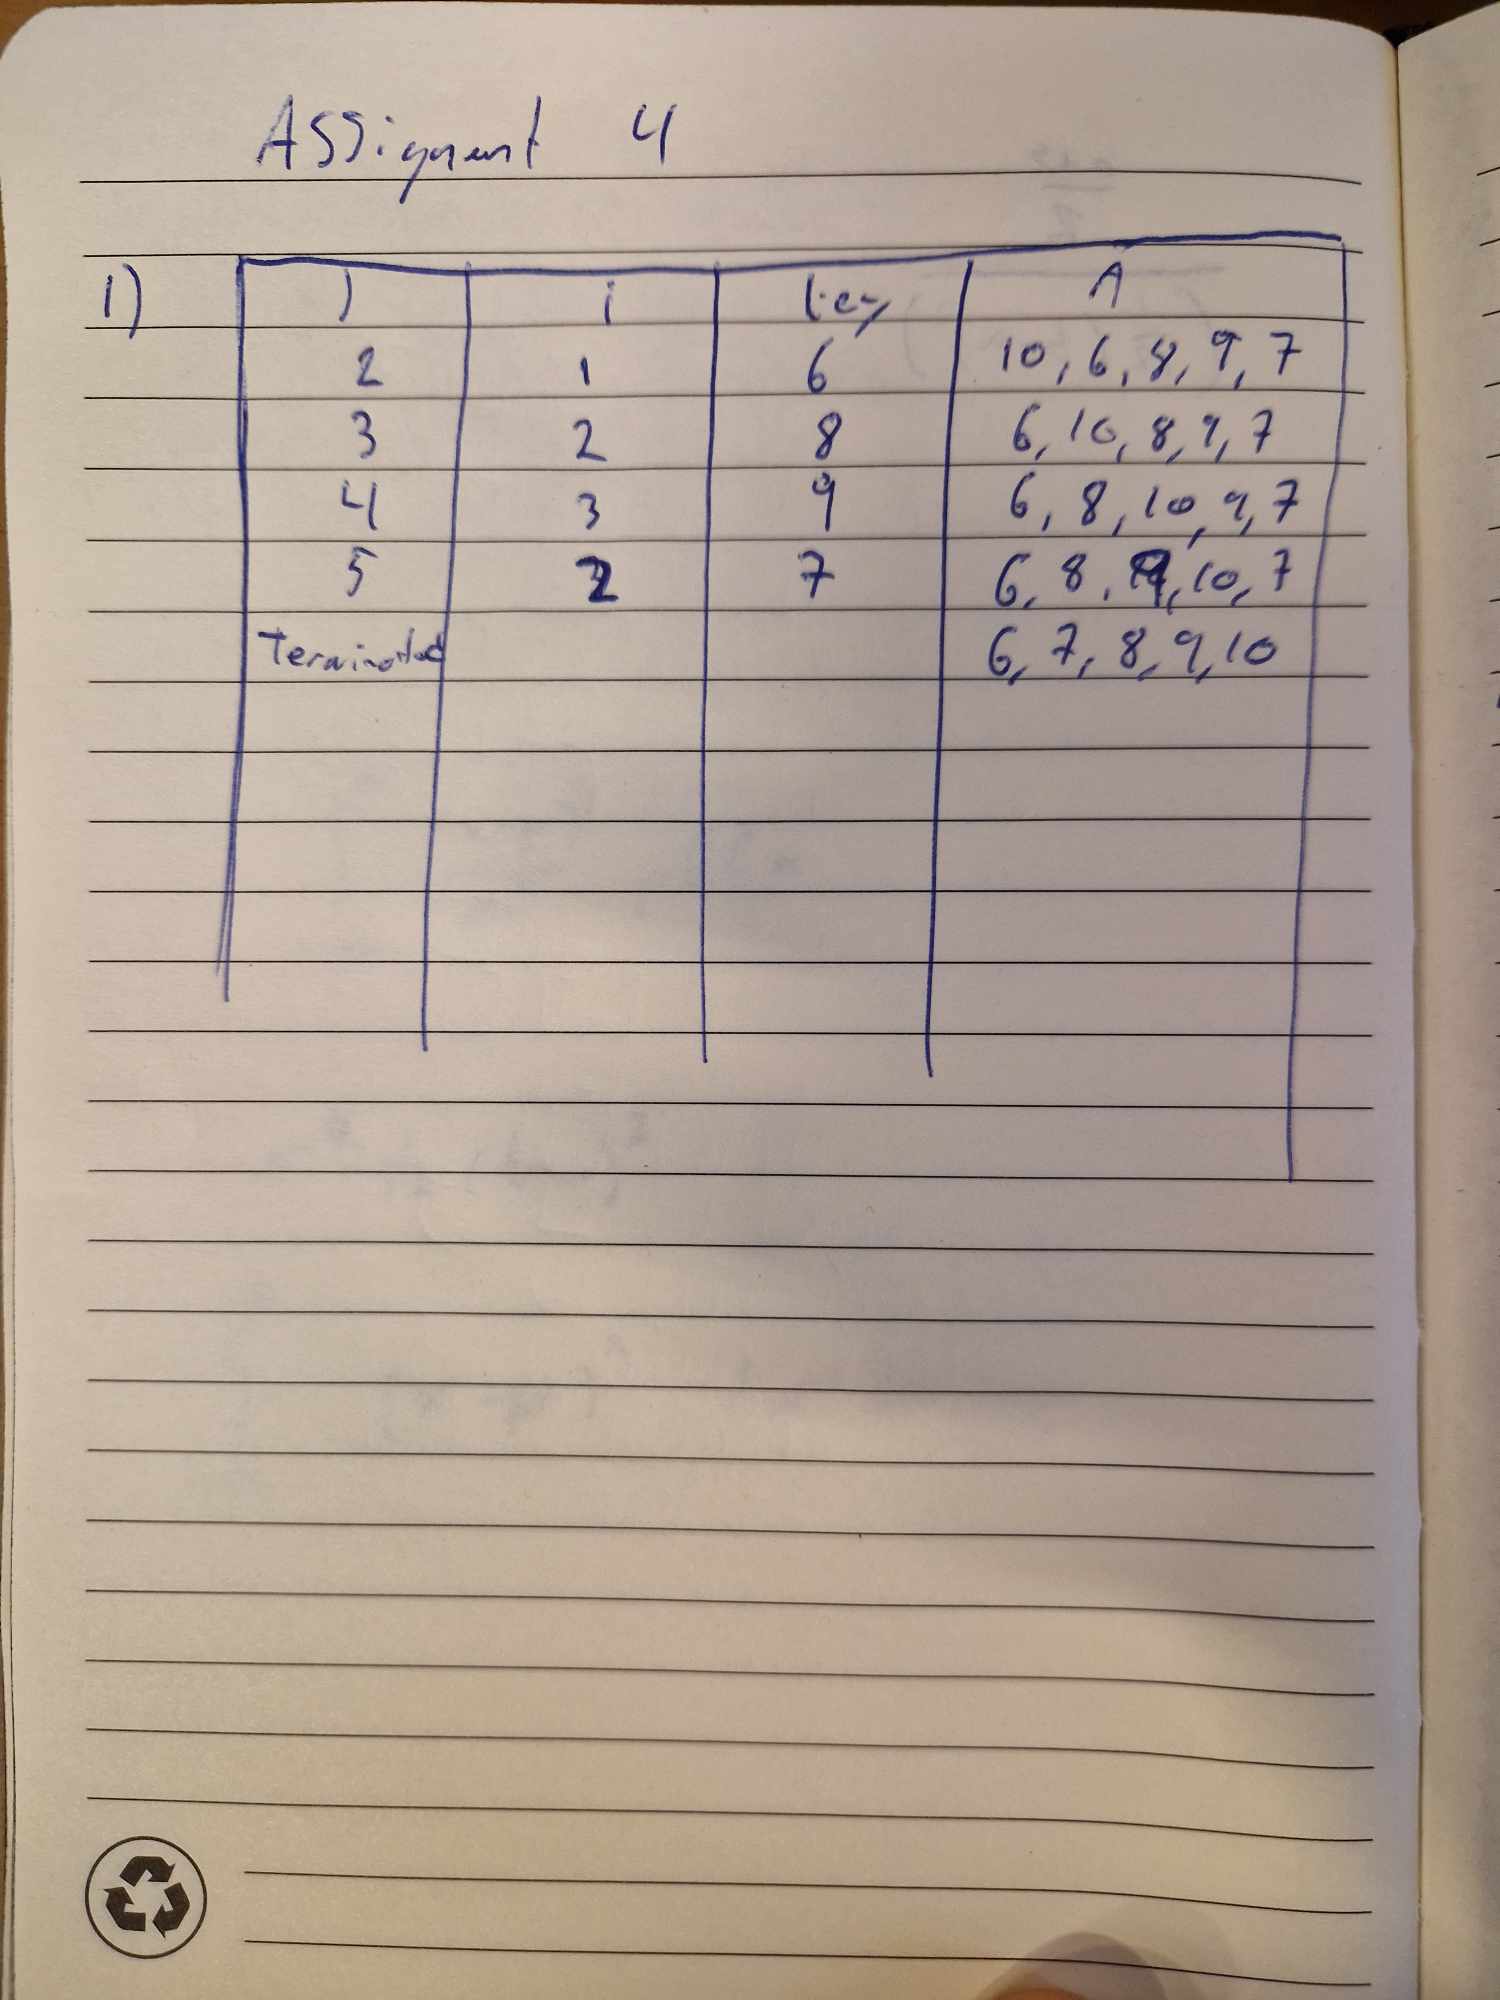 Assigment 4
1) j i key A
2 1 6 10, 6, 8, 9, 7
3 2 8 6, 10, 8, 9, 7
4 3 9 6, 8, 10, 9, 7
5 2 7 6, 8, 9, 10, 7
Terminated 6, 7, 8, 9, 10